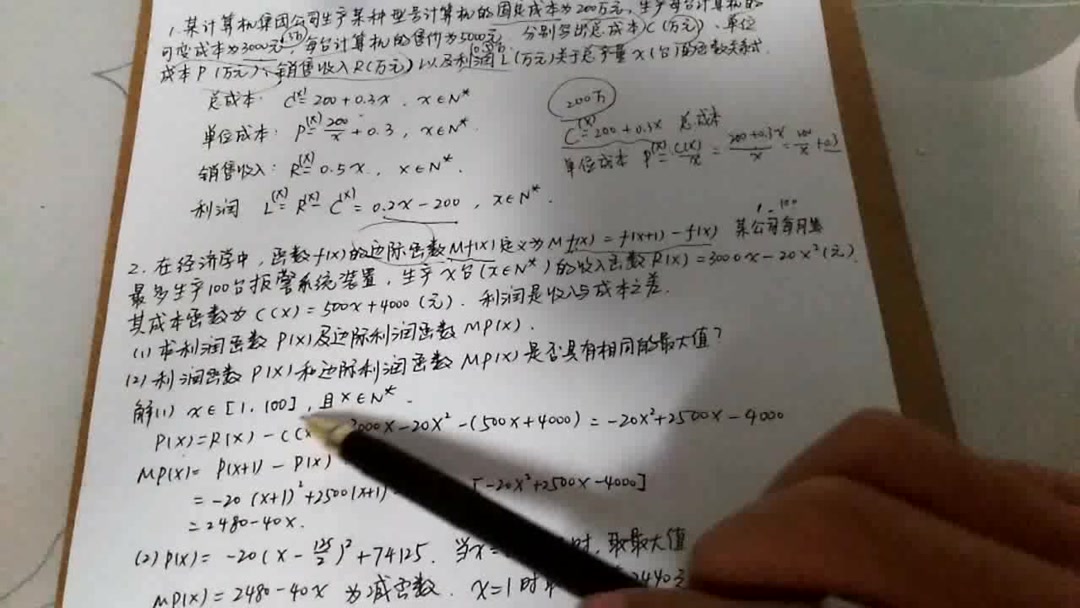 1. 某计算机集团公司生产某种型号计算机的固定成本为200万元, 生产每台计算机的
可变成本为3000元, 每台计算机的售价为5000元, 分别写出总成本C(万元)、单位
成本P(万元)、销售收入R(万元)以及利润L(万元)关于总产量x(台)的函数关系式.
总成本: C(x)=200+0.3x, x∈N*.
单位成本: P(x)=200/x+0.3, x∈N*.
销售收入: R(x)=0.5x, x∈N*.
利润 L(x)=R(x)-C(x)=0.2x-200, x∈N*.
200万
C(x)=200+0.3x 总成本
单位成本 P(x)=C(x)/x=200+0.3x/x=200/x+0.3
1-100
2. 在经济学中, 函数f(x)的边际函数Mf(x)定义为Mf(x)=f(x+1)-f(x) 某公司每月
最多生产100台报警系统装置, 生产x台(x∈N*)的收入函数R(x)=3000x-20x²(元),
其成本函数为C(x)=500x+4000(元). 利润是收入与成本之差.
(1)求利润函数P(x)及边际利润函数MP(x).
(2)利润函数P(x)和边际利润函数MP(x)是否具有相同的最大值?
解(1) x∈[1,100], 且x∈N*.
P(x)=R(x)-C(x 3000x-20x²-(500x+4000)=-20x²+2500x-4000
MP(x)=P(x+1)-P(x)
=-20(x+1)²+2500(x+1) [-20x²+2500x-4000]
=2480-40x.
(2)P(x)=-20(x-125/2)²+74125. 当x= 时, 取最大值
MP(x)=2480-40x 为减函数. x=1时 2440